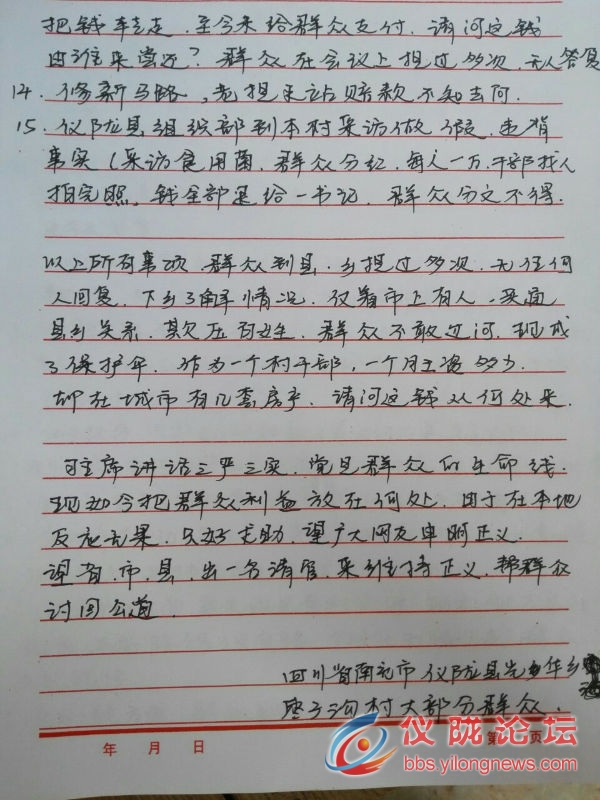 把钱转走，至今未给群众支付，请问这钱
由谁来偿还？群众在会议上提过多次，无人答复
14、修新马路，老提灌站赔款不知去向。
15、仪陇县组织部到本村采访做假，违背
事实（采访食用菌，群众分红，每人一万，干部找人
拍完照，钱全部退给一书记，群众分文不得。
以上所有事项群众到县、乡提过多次，无任何
人回复，下乡了解情况，仅着市上有人，买通
县乡关系，欺压百姓，群众不敢过问，现成
了保护伞，作为一个村干部，一个月工资多少
却在城市有几套房子，请问这钱从何处来。
习主席讲话三严三实，党是群众的生命线，
现如今把群众利益放在何处，由于在本地
反应无果，只好求助，望广大网友申明正义，
望省、市、县，出一名清官，来维持正义，帮群众
讨回公道
四川省南充市仪陇县 华乡
河村大部分群众
年 月 日
第 页
仪陇论坛
bbs.yilongnews.com